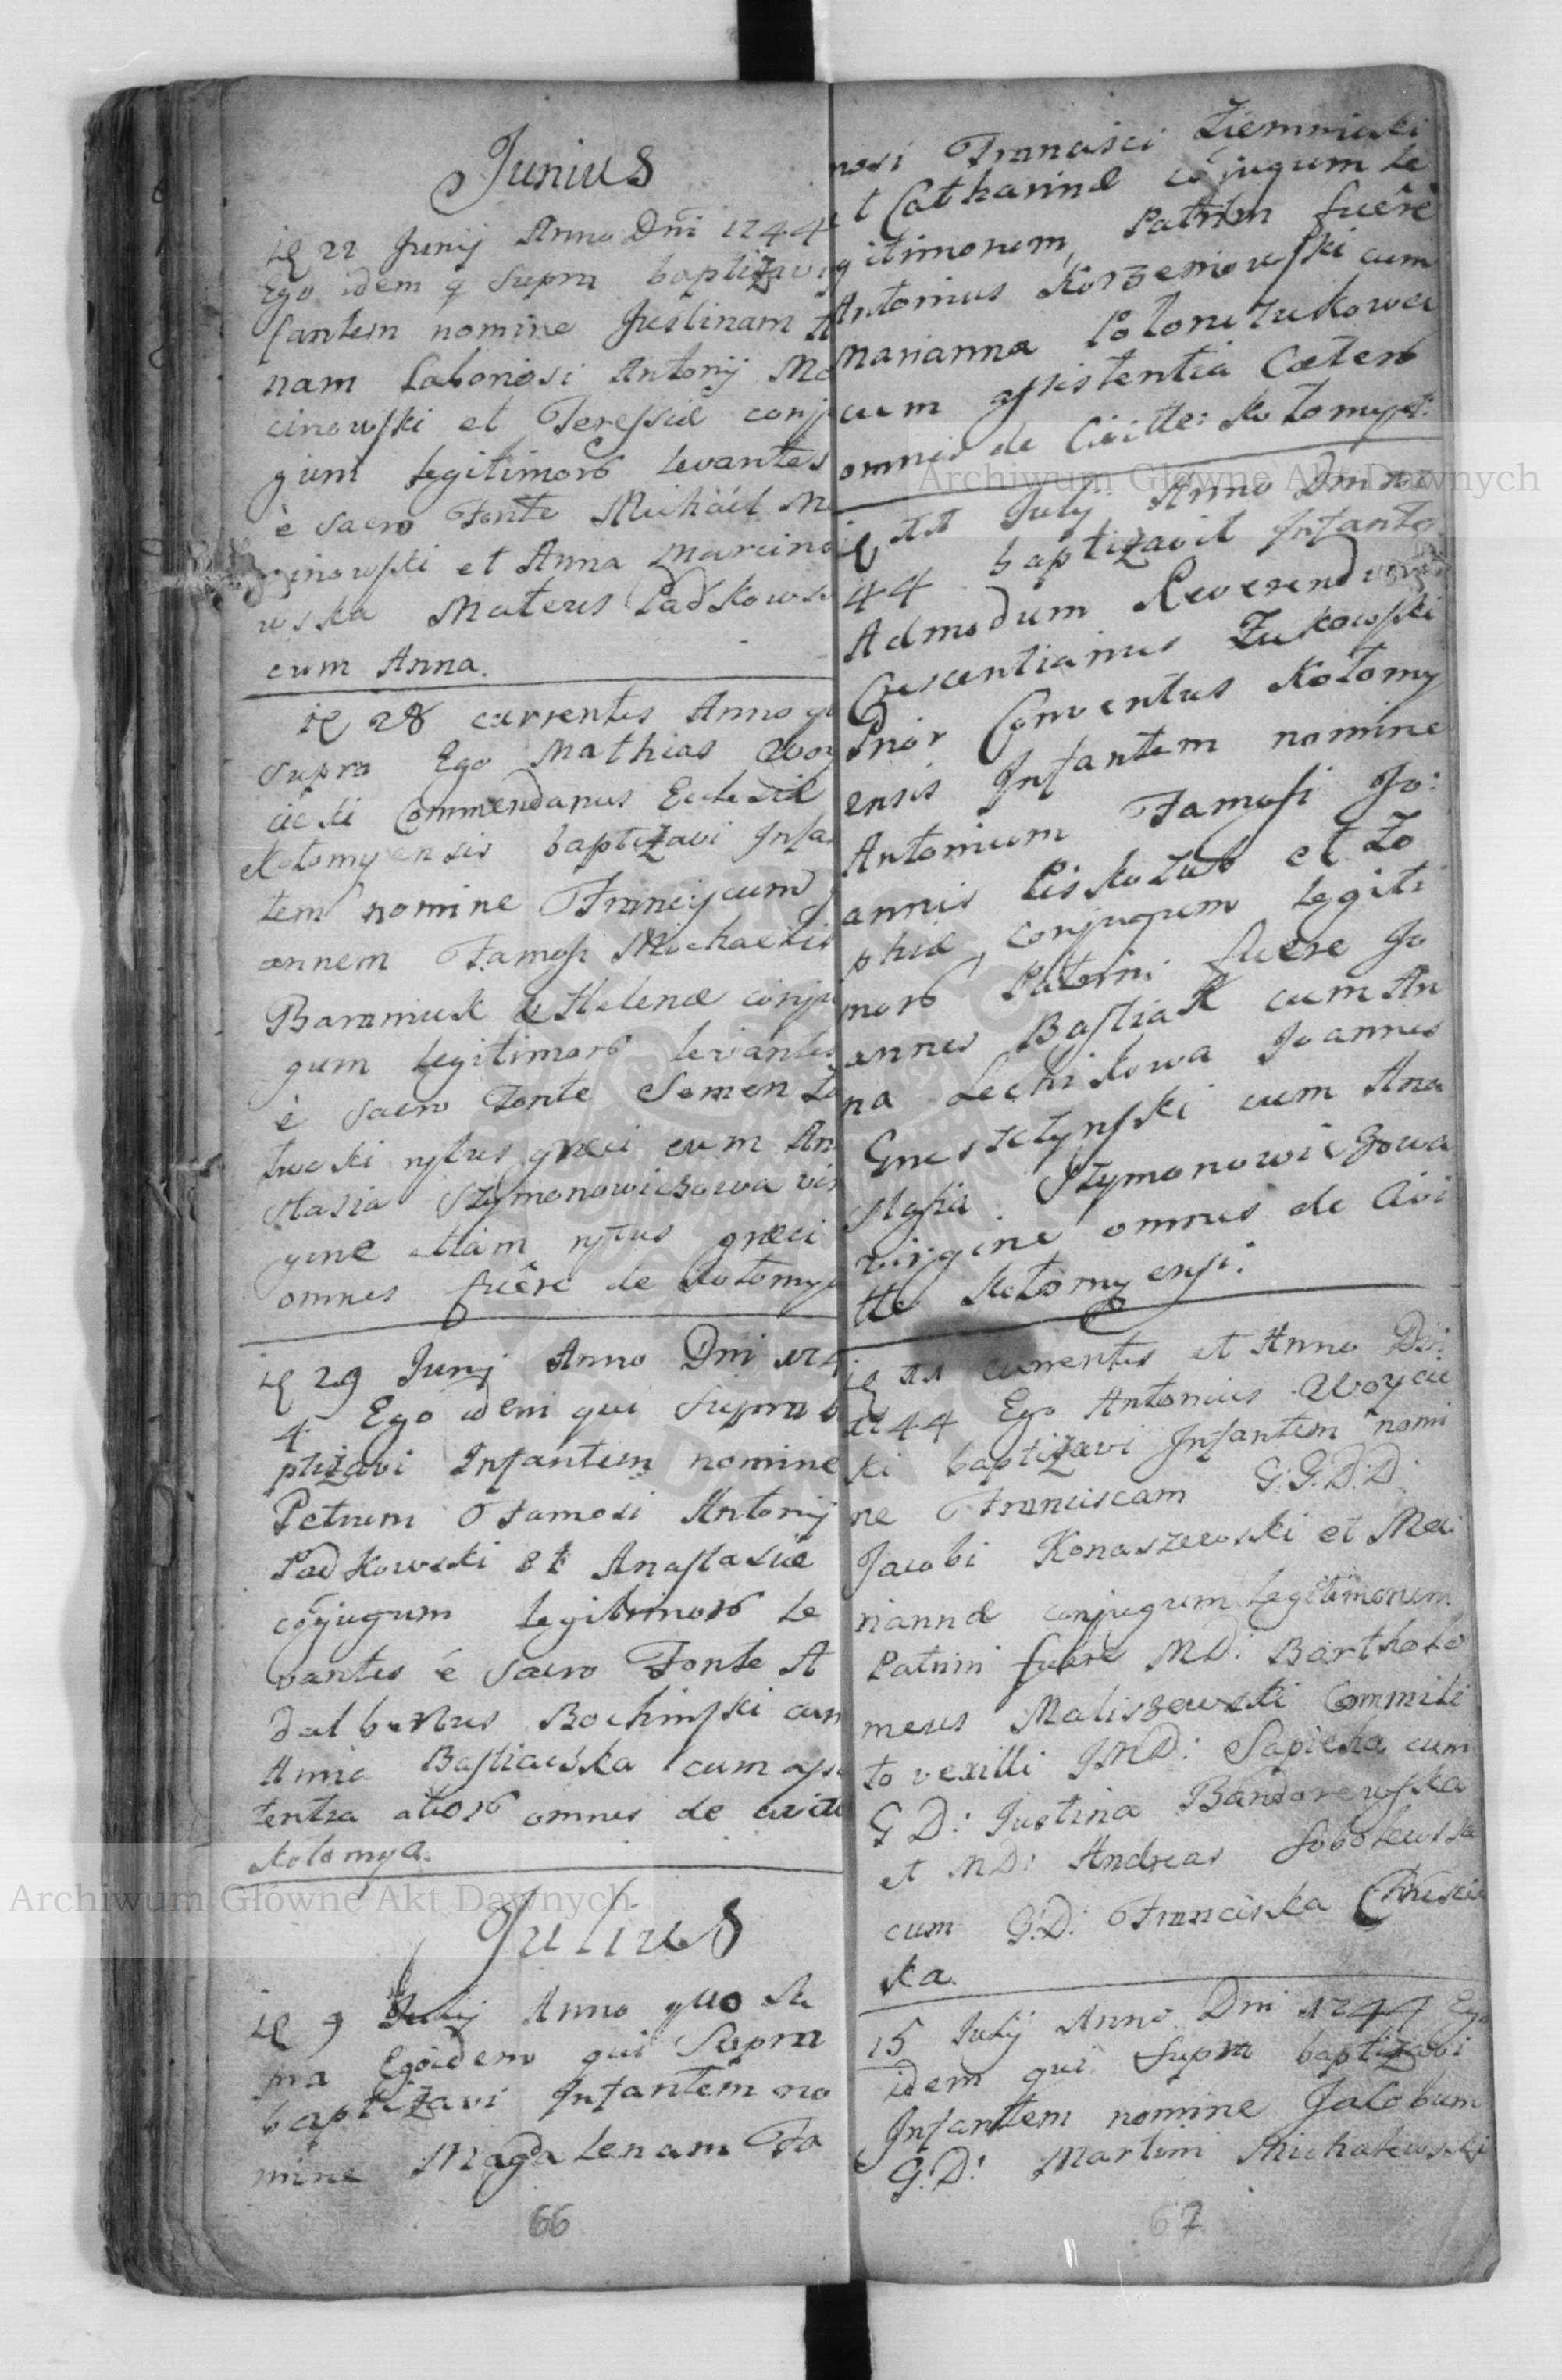 Junius
22 Junij Anno Dni 1744
Ego idem q Supra baptizavi
fantem nomine Justinam A
nam Laboriosi Antonij Ma
cinowski et Teressiæ conju
gum legitimor levantes
è Sacro Fonte Michäel M
cinowski et Anna Marcino
wska Mateus Padkows
cum Anna.
28 currentis Anno q
Supra Ego Mathias Woy
cicki Commendarius Ecclesiæ
Kołomyensis baptizavi Infa
tem nomine Franciscum
annem Famosi Michaelis
Baraniuk & Helenæ conju
gum legitimor levantes
è Sacro Fonte Semen
ritus græci cum An
stasia Szymonowiczowa vir
gine etiam ritus græci
omnes fuêre de Kołomyi
29 Junij Anno Dni 174
4 Ego idem qui Supra b
ptizavi Infantem nomine
Petrum Famosi Antonij
Padkowski et Anastasiæ
cojugum legitimor le
vantes è Sacro Fonte A
dalbertus Bochinski cum
Anna Bastiacska cum assi
tentia alior omnes de civitt
Kołomya.
Julius
9 Julij Anno quo Su
pra Ego idem qui Supra
baptizavi Infantem no
mine Magdalenam Fa
66
mosi Francisci Ziemniski
t Catharinæ cojugum le
gitimorum, Patrini fuêre
Antonius Korzeniowski cum
Marianna
cum assistentia Cæter
omnes de Civitte: Kołomyi
11 Julij Anno Dni 17
44 baptizavit Infante
Admodum Reverendus
Crescentianus Zukowski
Prior Conventus Kołomy
ensis Infantem nomine
Antonium Famosi Jo:
annis Piskozub et Zo
phiæ conjugum legiti
mor Patrini fuere Jo
annes Bastiak cum An
na Lechikowa Joannes
cum Ana
stasia Szymonowiczowa
virgine omnes de Civi
tte Kołomyensi.
11 currentis et Anno Dni
1744 Ego Antonius Woycic
ki baptizavi Infantem nomi
ne Franciscam G: G: D: D:
Jacobi Konaszewski et Ma
riannæ conjugum legitimorum
Patrini fuêre MD: Bartholo
meus Maliszewski Commili
to vexilli JMD: Sapieha cum
G D: Justina Bandorewska
et MD: Andreas Sobolewska
cum G: D: Franciska
ka.
15 Julij Anno Dni 1744 Ego
idem qui Supra baptizavi
Infantem nomine Jacobum
G: D: Martini Michalewski
67
Archiwum Główne Akt Dawnych
Archiwum Główne Akt Dawnych